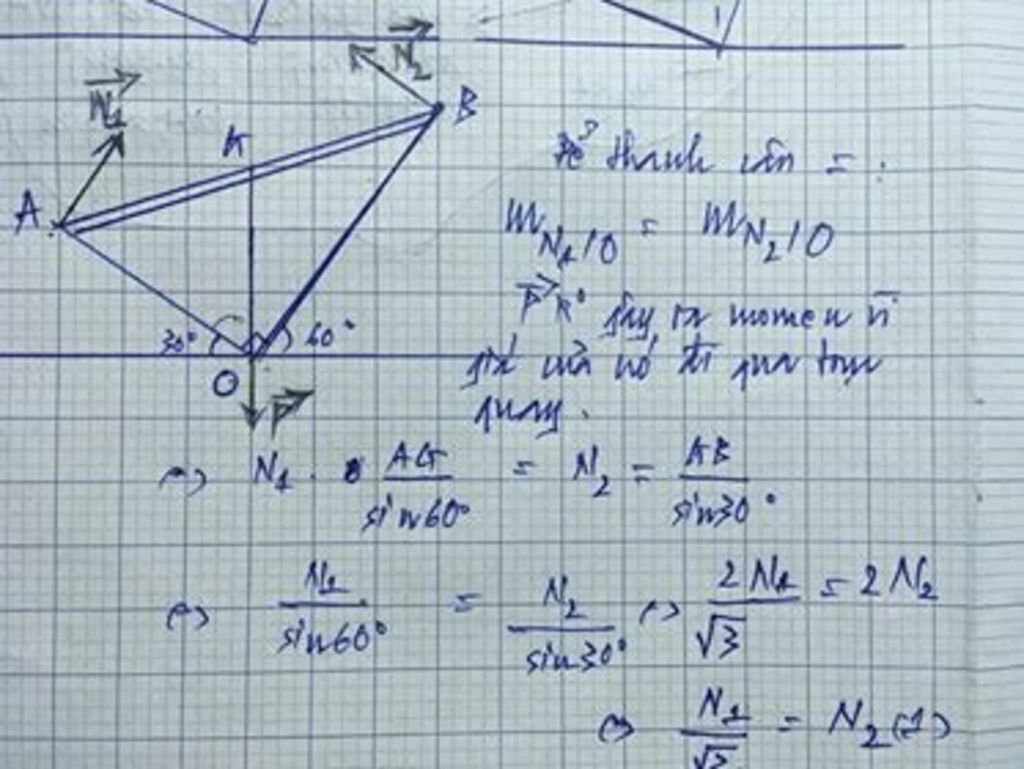 N₁
N₂
B
K
A
30°
60°
O
P
Để thanh cân = :
m N₁/O = m N₂/O
P k° gây ra momen vì
giá của nó đi qua trục
quay.
⇔ N₁ . AG/sin60° = N₂ = KB/sin30°
⇔ N₁/sin60° = N₂/sin30° ⇔ 2N₁/√3 = 2N₂
⇔ N₁/√3 = N₂ (1)